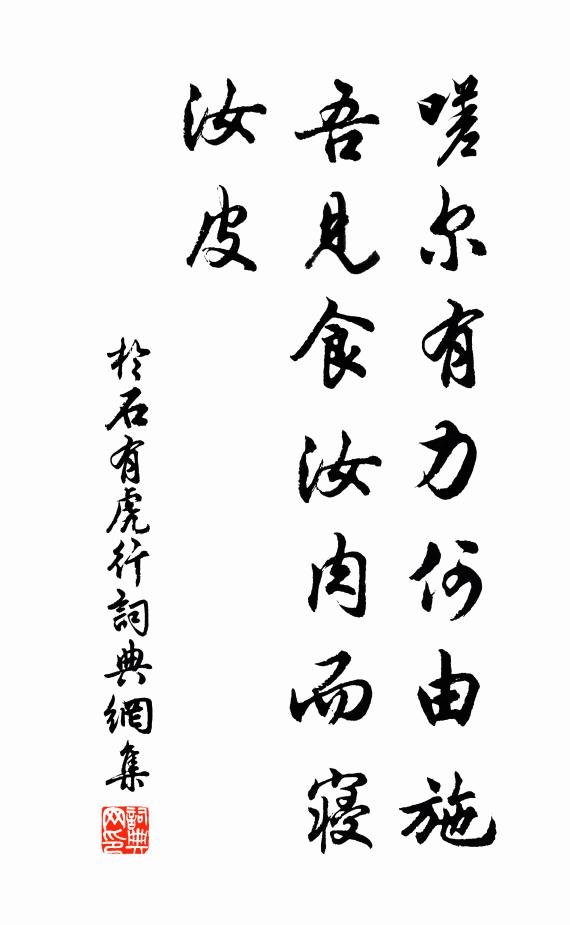 嗟尔有力何由施
吾见食汝肉而寝
汝皮
於石有虎行詞典網集
詞典网印